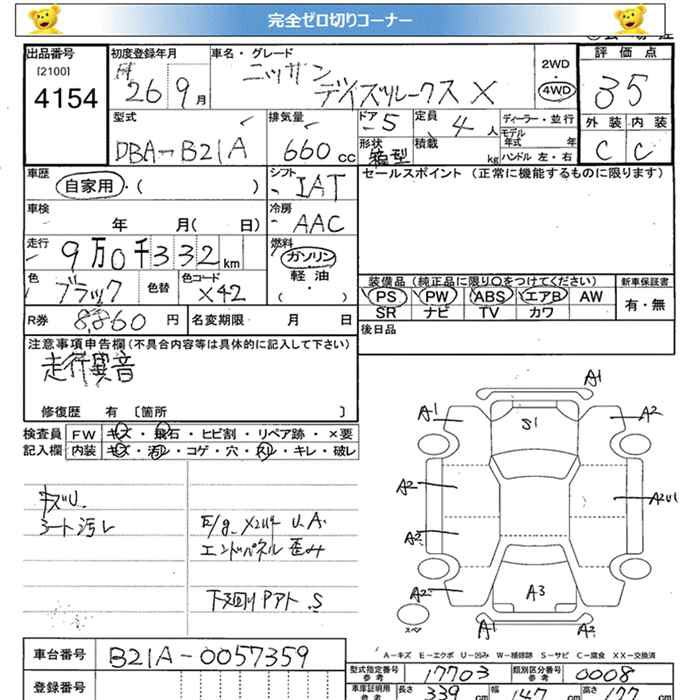 完全ゼロ切りコーナー
出品番号
[2100]
4154
初度登録年月
26 9月
車名・グレード
ニッサン
デイズルークス X
2WD
4WD
評価点
35
型式
DBA-B21A
排気量
660 cc
ドア
5
定員
4人
形状
箱型
積載
kg
ディーラー・並行
モデル年式 年
ハンドル 左・右
外装 内装
C C
車歴
自家用・( )
シフト
IAT
セールスポイント (正常に機能するものに限ります)
車検
年 月( 日)
冷房
AAC
走行
9万0千332km
燃料
ガソリン
軽油
( ・ )
色
ブラック
色替
色コード
X42
装備品 (純正品に限り○をつけてください)
PS PW ABS エアB AW
SR ナビ TV カワ
新車保証書
有・無
R券 8,860円
名変期限 月 日
後日品
注意事項申告欄(不具合内容等は具体的に記入して下さい)
走行異音
修復歴 有 〔箇所 〕
検査員記入欄
FW キズ・飛石・ヒビ割・リペア跡・×要
内装 キズ・汚レ・コゲ・穴・スレ・キレ・破レ
キズU.
シート汚レ
エンドパネル歪み
A1
A1
A2
S1
A2
A2
A2
A3
A2
A1
A2
スペア
A-キズ E-エクボ U-凹み W-補修跡 S-サビ C-腐食 XX-交換済
車台番号
B21A-0057359
登録番号
型式指定番号 参考
17703
類別区分番号 参考
0008
車庫証明用 参考
長さ 339 cm
幅 147 cm
高さ 177 cm